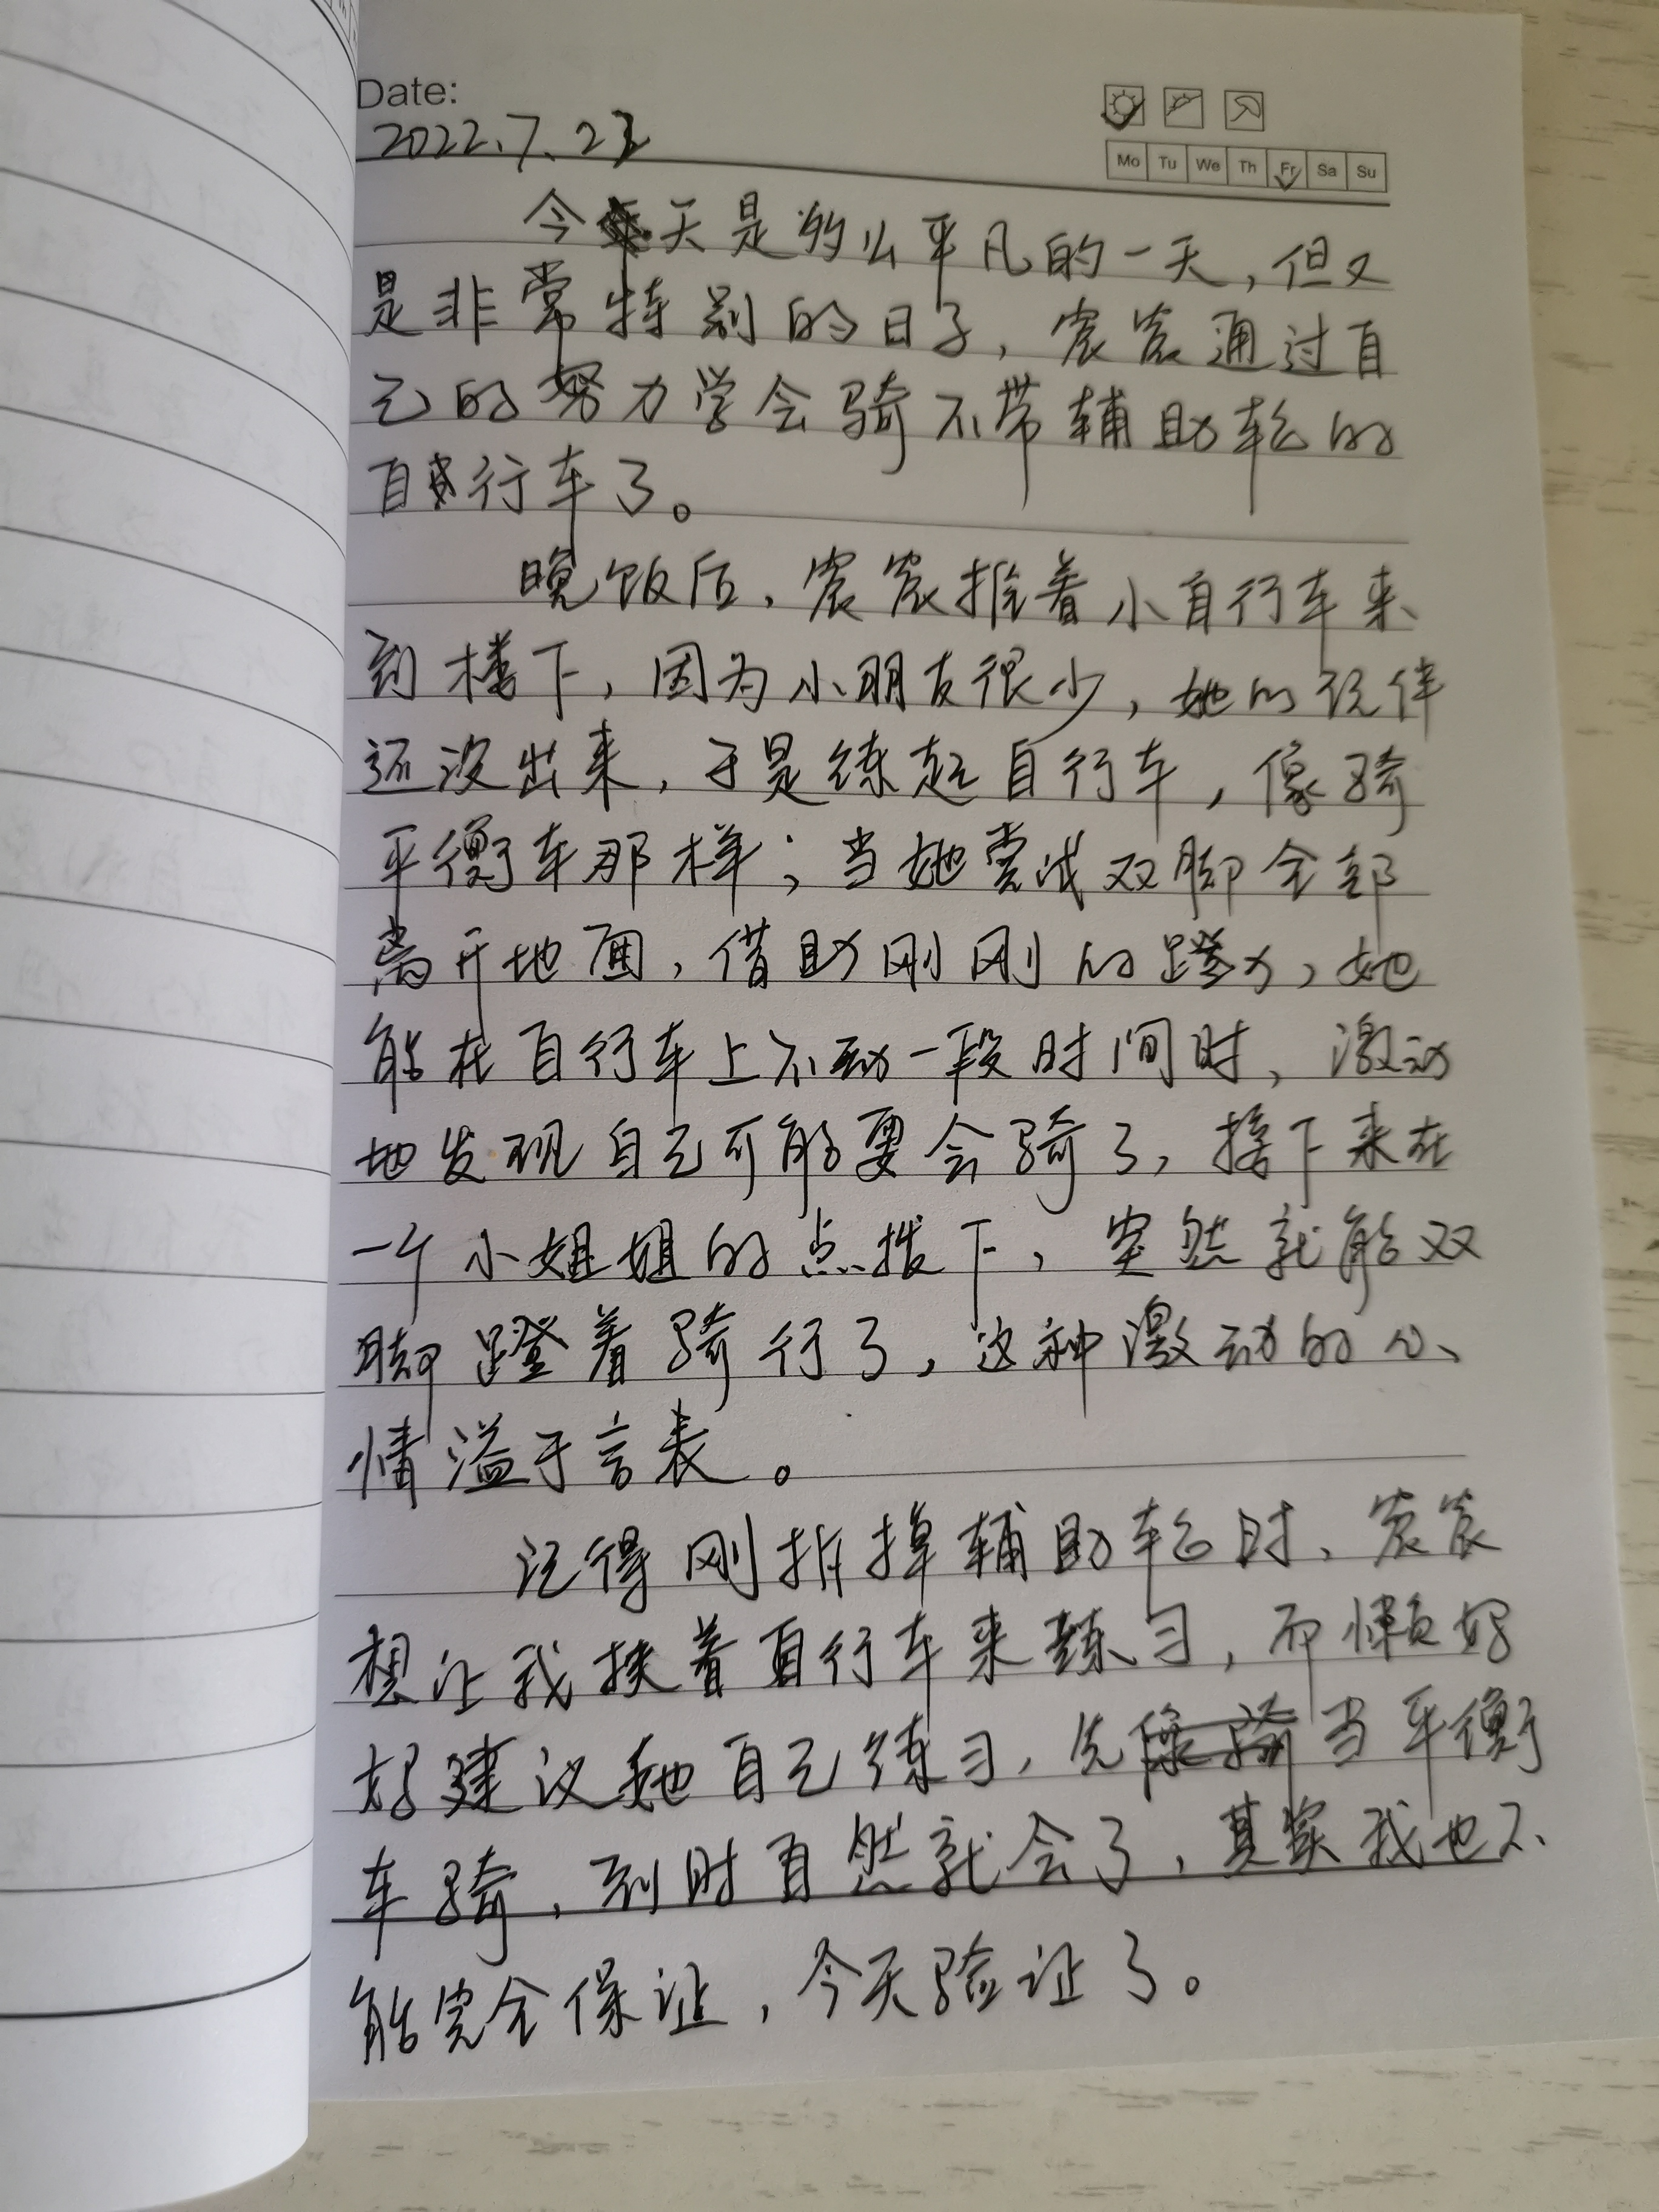 Date:
2022.7.22
Mo Tu We Th Fr Sa Su
今天是多么平凡的一天，但又
是非常特别的日子，宸宸通过自
己的努力学会骑不带辅助轮的
自行车了。
晚饭后，宸宸推着小自行车来
到楼下，因为小朋友很少，她的玩伴
还没出来，于是练起自行车，像骑
平衡车那样；当她尝试双脚全部
离开地面，借助刚刚的蹬力，她
能在自行车上不动一段时间时，激动
地发现自己可能要会骑了，接下来在
一个小姐姐的点拨下，突然就能双
脚蹬着骑行了，这种激动的心
情溢于言表。
记得刚拆掉辅助轮时，宸宸
想让我扶着自行车来练习，而懒妈
妈建议她自己练习，先当平衡
车骑，到时自然就会了，其实我也不
能完全保证，今天验证了。